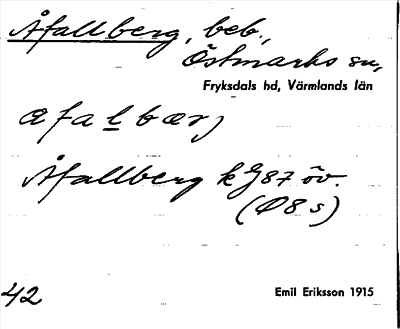 Åfallberg, beb.,
Östmarks sn,
Fryksdals hd, Värmlands län
Åfallberg
87 öv.
(Ø8s)
42
Emil Eriksson 1915